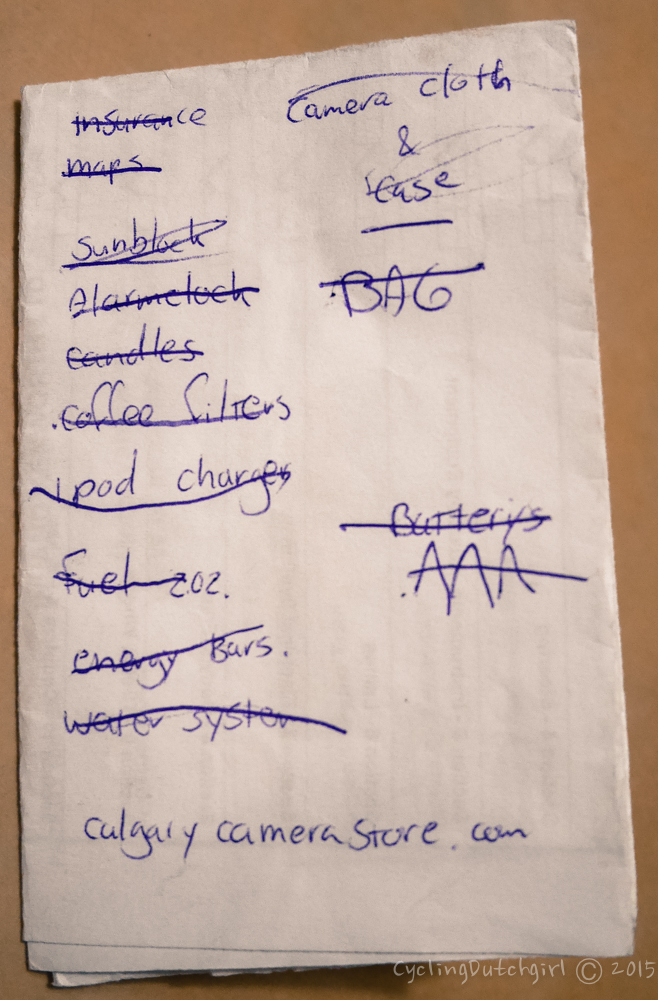 insurance
maps
sunblock
Alarmclock
candles
coffee filters
ipod charger
fuel 202.
energy Bars.
water system
Camera cloth
&
case
BAG
Batterys
AAA
calgary camera store.com
CyclingDutchgirl © 2015